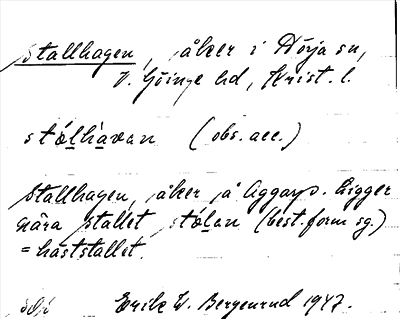 Stallhagen, åker i Hörja sn,
V. Göinge hd, Krist. l.
stålhavan (obs. acc.)
Stallhagen, åker på Aggarp. Ligger
nära stallet stålan (best. form sg.)
= häststallet.
Erik W. Bergenrud 1947.